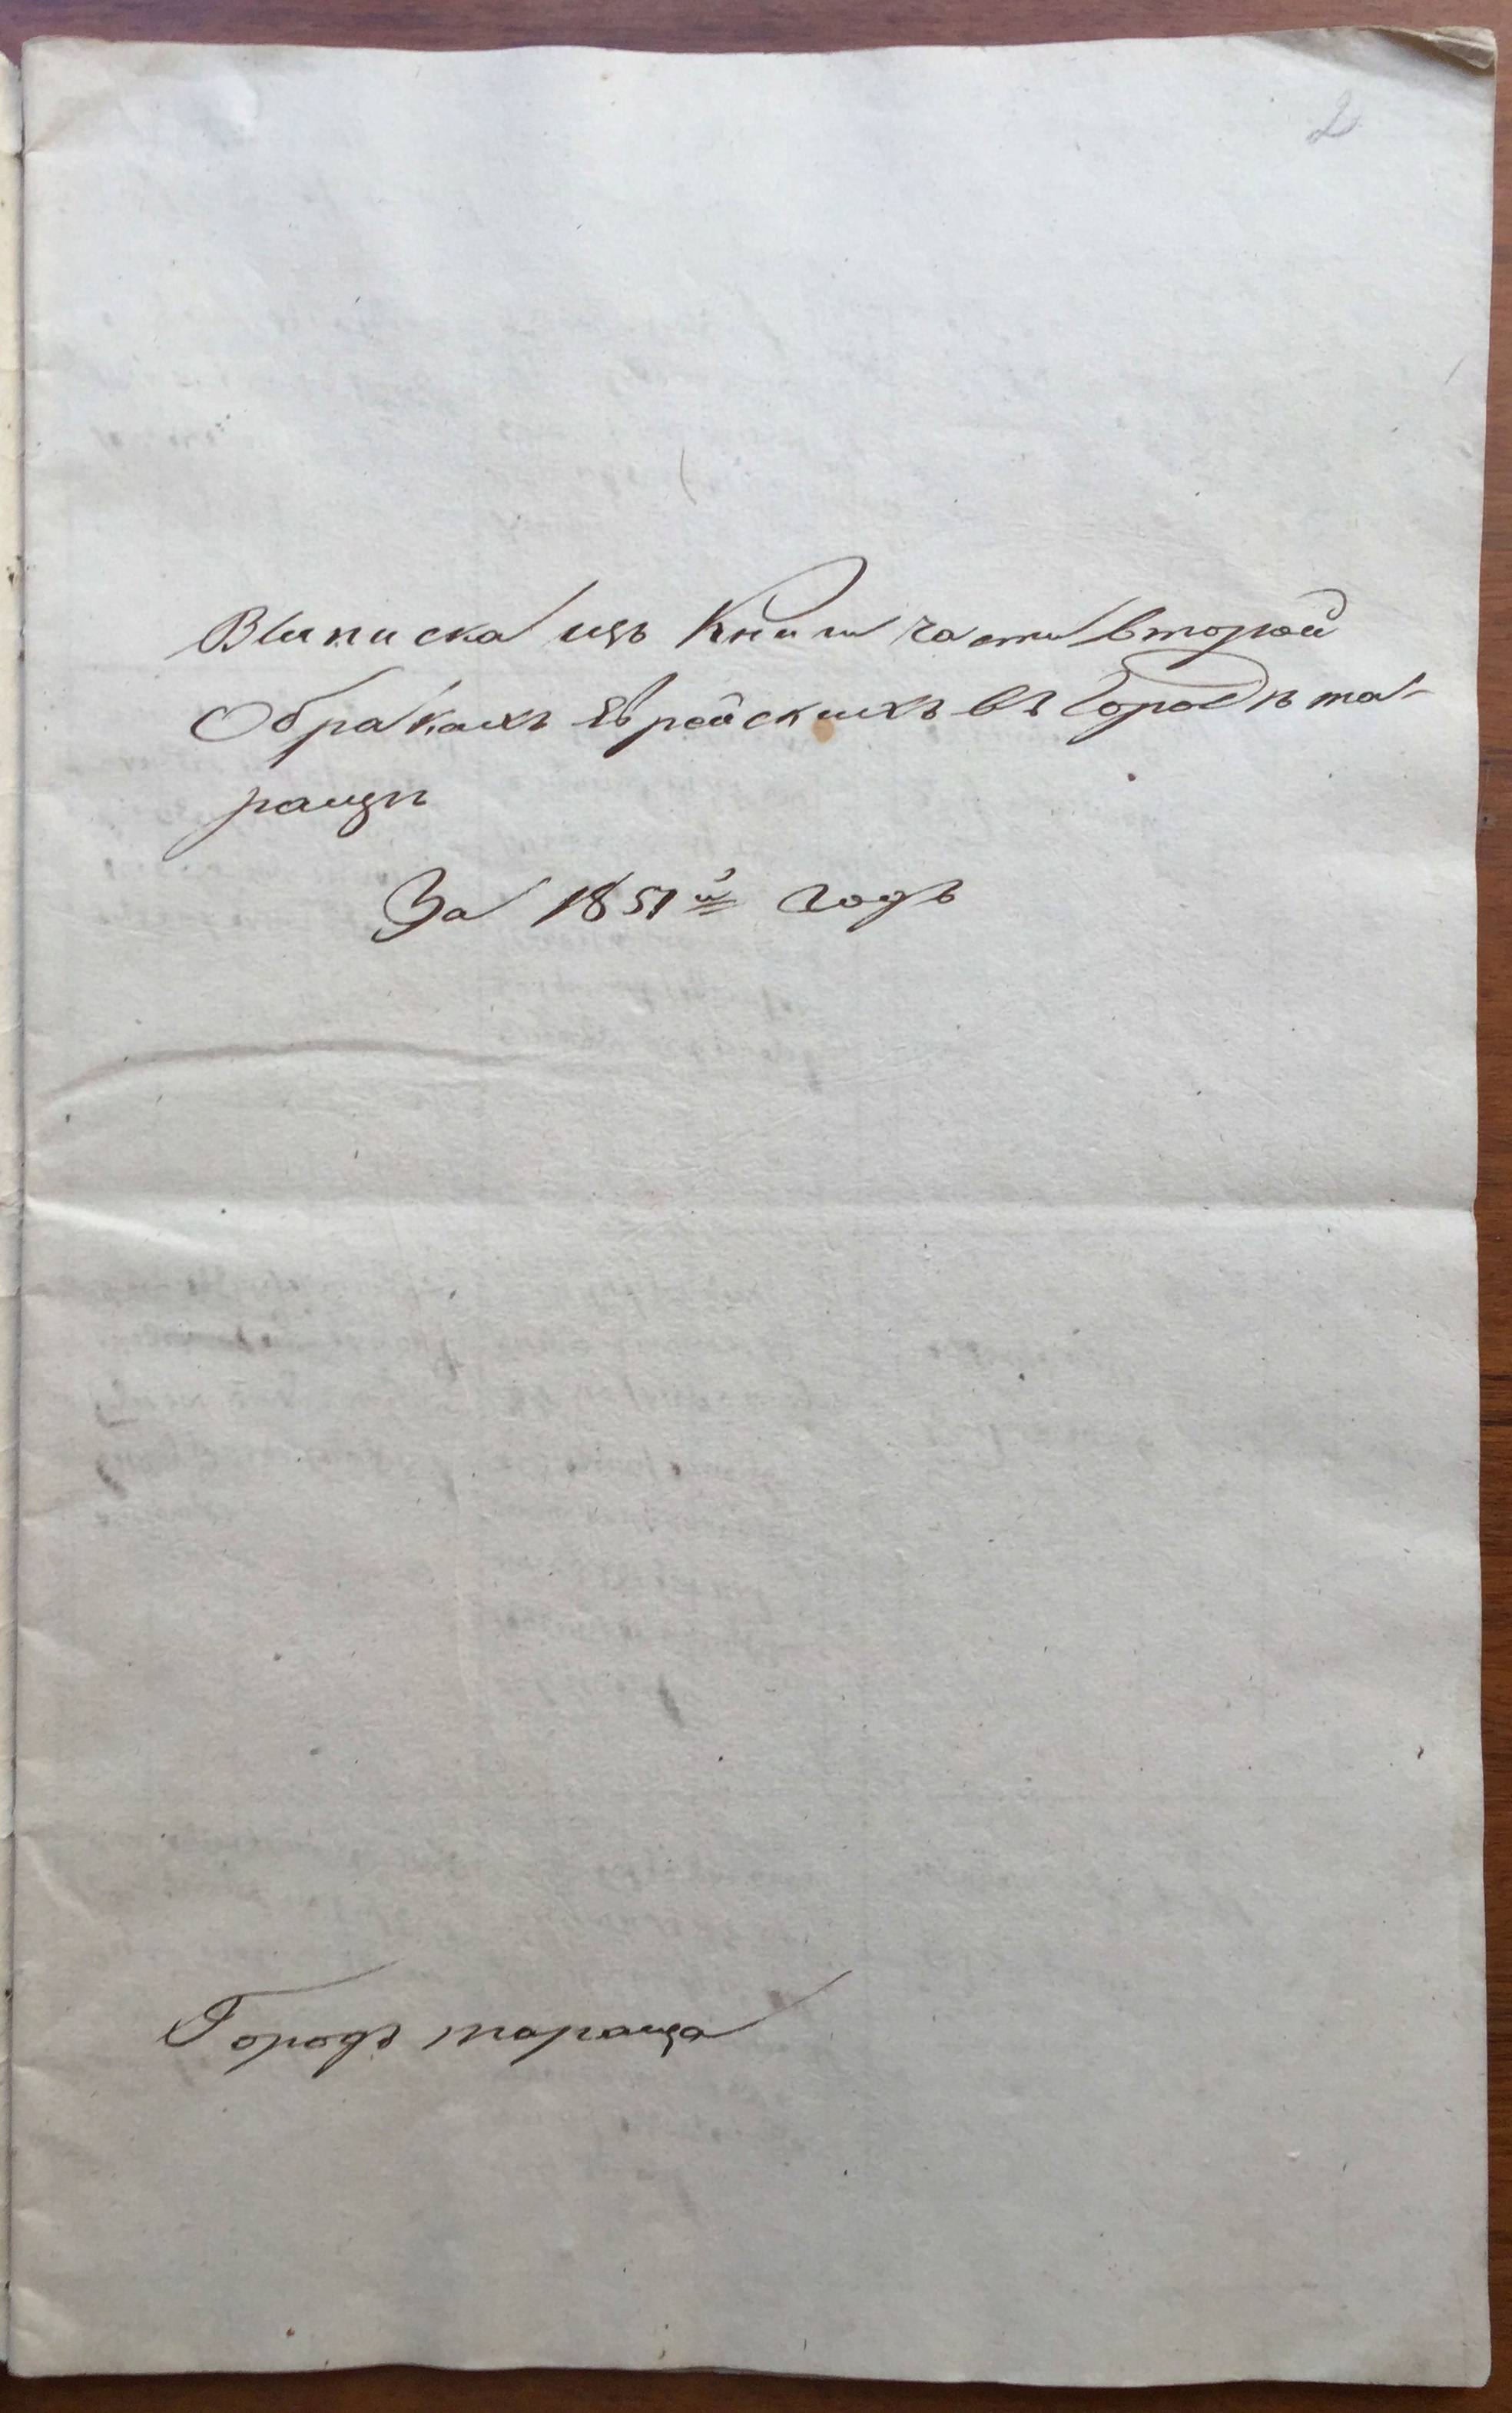 2
Выписка изъ Книги части второй
Обракахъ Еврейскихъ въ Городѣ та-
ращѣ
За 1851й годъ
Городъ тараща